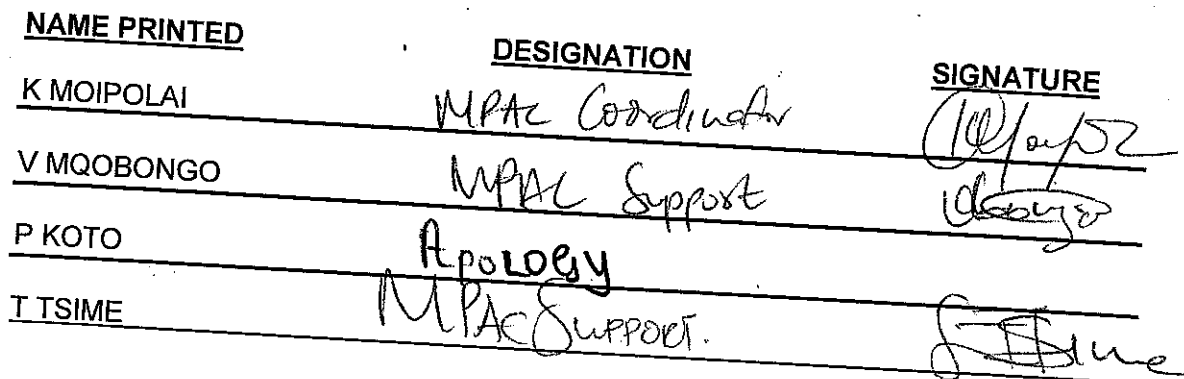 NAME PRINTED DESIGNATION SIGNATURE
K MOIPOLAI MPAC Coordinator
V MQOBONGO MPAC Support
P KOTO Apology
T TSIME MPAC SUPPORT.